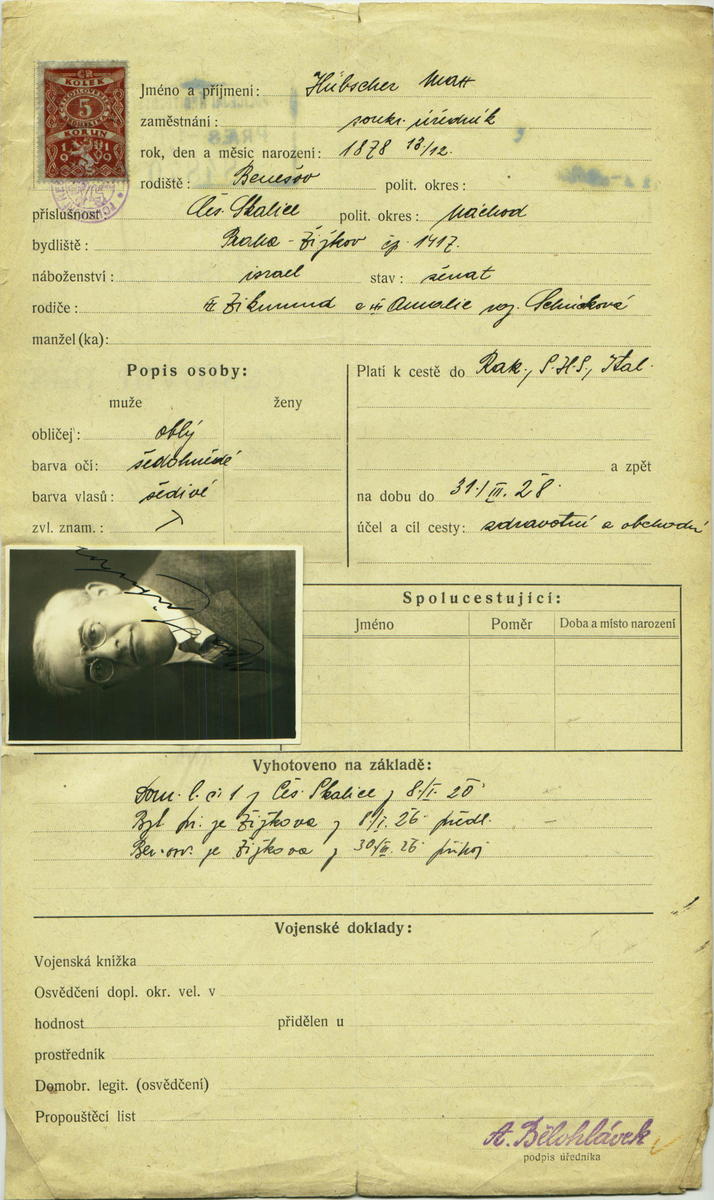 ČR
KOLEK
ČESKOSLOVENSKÁ
5
KORUN
Jméno a příjmení: Hübscher Max
zaměstnání: soukr. úředník
rok, den a měsíc narození: 1878 13/12.
rodiště: Benešov polit. okres:
příslušnost Čes. Skalice polit. okres: Náchod
bydliště: Praha - Žižkov čp. 1417.
náboženství: israel stav: ženat
rodiče: Zikmund a Amalie roz.
manžel (ka):
Popis osoby:
muže ženy
obličej: oblý
barva očí: šedohnědé
barva vlasů: šedivé
zvl. znam.:
Platí k cestě do Rak., S.H.S., Ital.
a zpět
na dobu do 31./III. 28.
účel a cíl cesty: zdravotní a obchodní
Spolucestující:
Jméno Poměr Doba a místo narození
Vyhotoveno na základě:
Dom. l. čj Čes. Skalice z 8./I. 20
Žižkova z 8/I. 26. předl.
Žižkova z 30/III. 26
Vojenské doklady:
Vojenská knížka
Osvědčení dopl. okr. vel. v
hodnost přidělen u
prostředník
Domobr. legit. (osvědčení)
Propouštěcí list
A. Bělohlávek
podpis úředníka